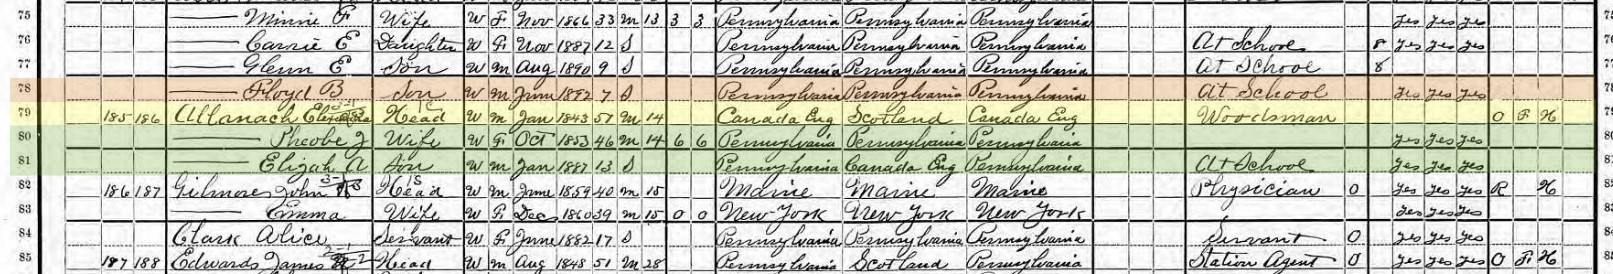 75 Minnie F Wife W F Nov 1866 33 M 13 3 3 Pennsylvania Pennsylvania Pennsylvania yes yes yes 75
76 Carrie E Daughter W F Nov 1887 12 S Pennsylvania Pennsylvania Pennsylvania At School 8 yes yes yes 76
77 Glenn E Son W M Aug 1890 9 S Pennsylvania Pennsylvania Pennsylvania At School 8 77
78 Floyd B Son W M June 1892 7 S Pennsylvania Pennsylvania Pennsylvania At School yes yes yes 78
79 185 186 Allanach Head W M Jan 1843 57 M 14 Canada Eng Scotland Canada Eng Woodsman O F H 79
80 Pheobe J Wife W F Oct 1853 46 M 14 6 6 Pennsylvania Pennsylvania Pennsylvania yes yes yes 80
81 Elizah A Son W M Jan 1887 13 S Pennsylvania Canada Eng Pennsylvania At School yes yes yes 81
82 186 187 Gilmore John Head W M June 1859 40 M 15 Maine Maine Maine Physician 0 yes yes yes R H 82
83 Emma Wife W F Dec 1860 39 M 15 0 0 New York New York New York yes yes yes 83
84 Clark Alice Servant W F June 1882 17 S Pennsylvania Pennsylvania Pennsylvania Servant 0 yes yes yes 84
85 187 188 Edwards James Head W M Aug 1848 51 M 28 Pennsylvania Scotland Pennsylvania Station Agent 0 yes yes yes O F H 85